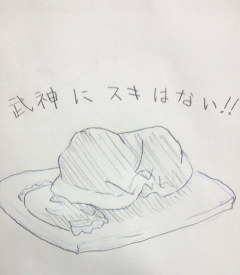 武神にスキはない!!